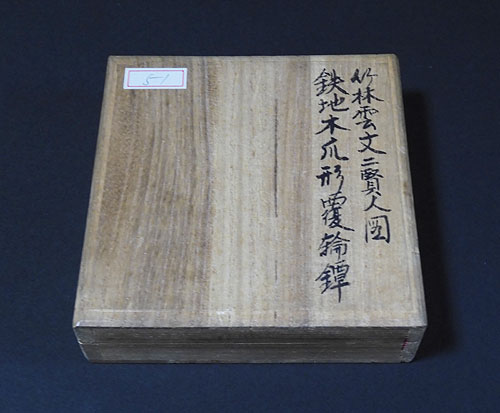 竹林雲文二賢人図
鉄地木瓜形覆輪鐔
51